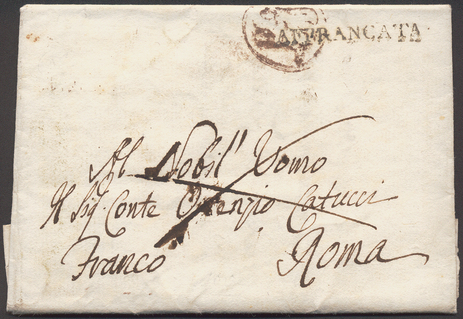 AFFRANCATA
Al Nobil' Uomo
Il Sig Conte Orenzio Catucci
Franco Roma